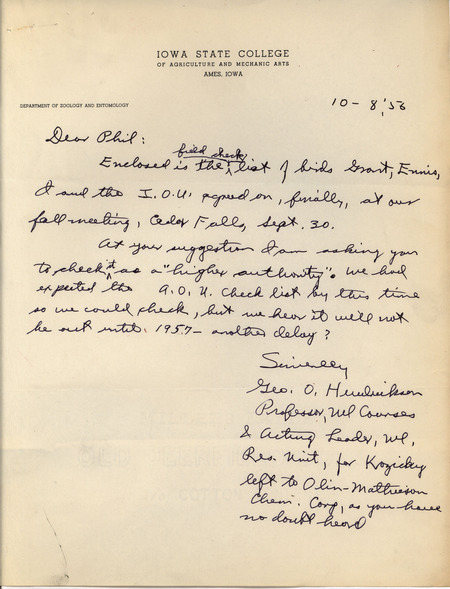 IOWA STATE COLLEGE
OF AGRICULTURE AND MECHANIC ARTS
AMES, IOWA
DEPARTMENT OF ZOOLOGY AND ENTOMOLOGY
10-8,'56
Dear Phil:
field check
Enclosed is the list of birds Grant, Ennis,
I and the I.O.U. agreed on, finally, at our
fall meeting, Cedar Falls, Sept. 30.
At your suggestion I am asking you
to check it as a "higher authority". We had
expected the A.O.U. Check list by this time
so we could check, but we hear it will not
be out until 1957 - another delay?
Sincerely
Geo. O. Hendrickson
Professor, Wl Courses
& Acting Leader, Wl,
Res. Unit, for Kozicky
left to Olin-Mathieson
Chem. Corp, as you have
no doubt heard